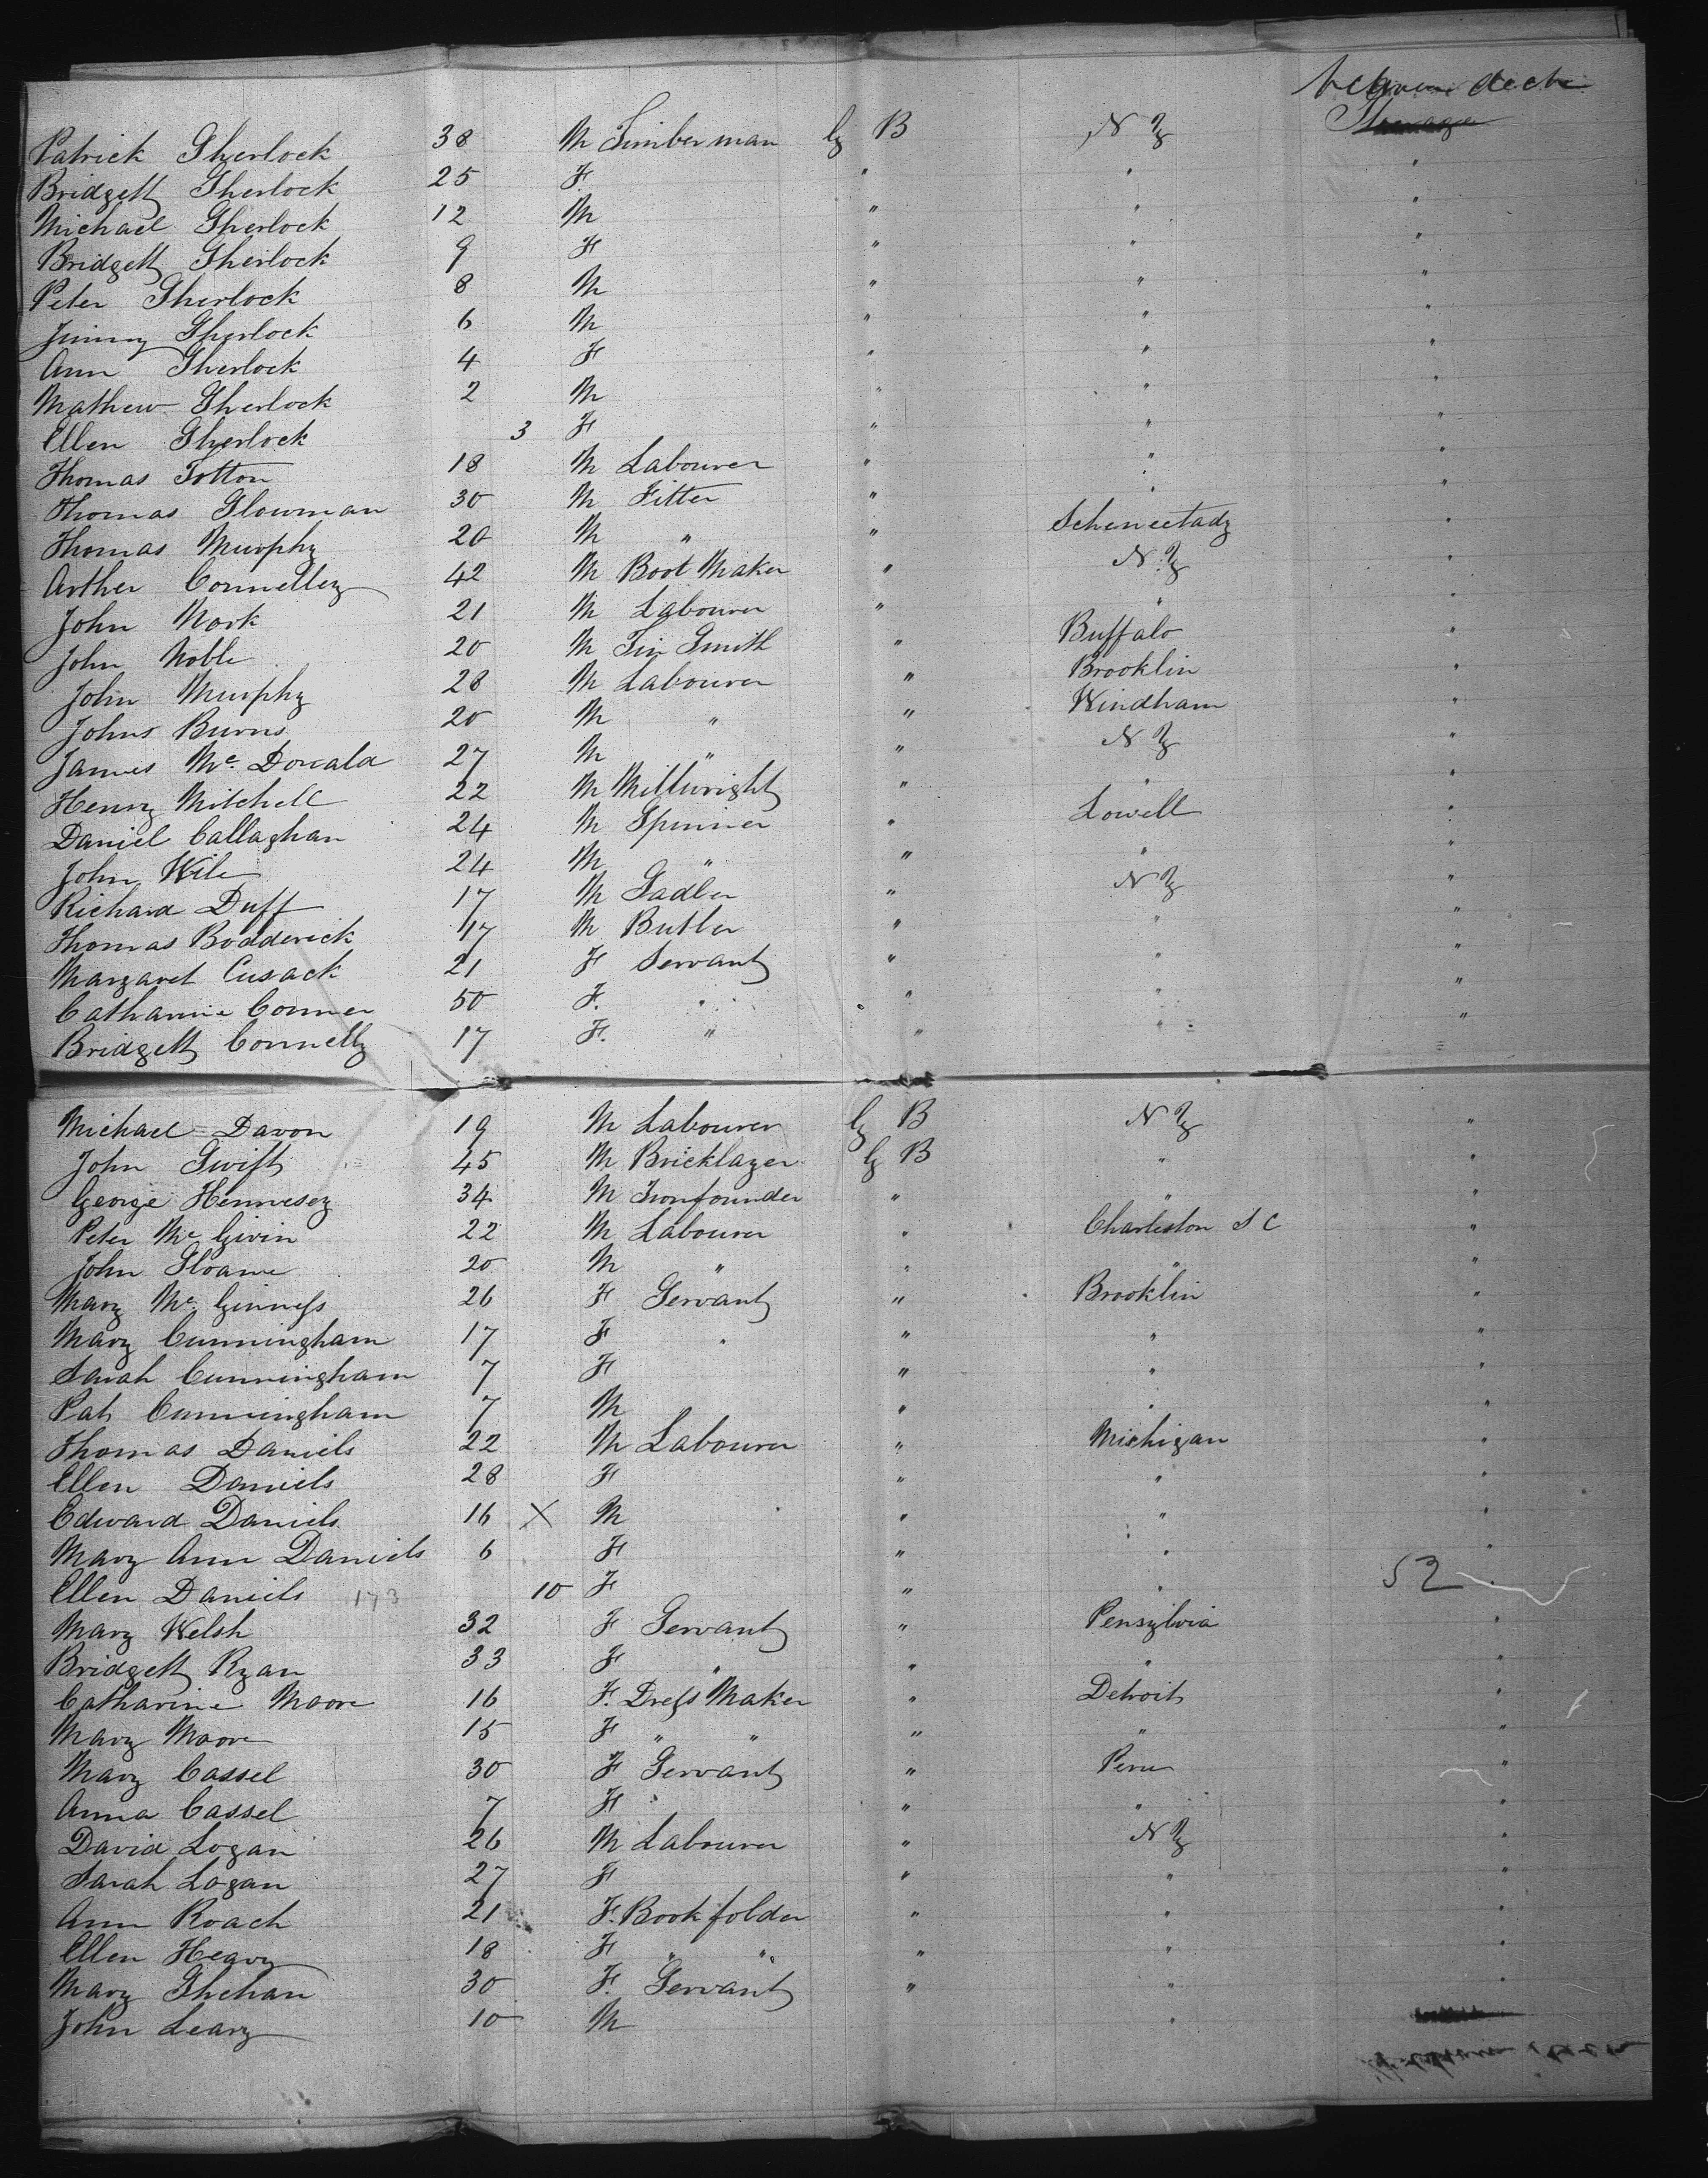 between deck
Patrick Sherlock 38 M Timber man G B N Y Steerage
Bridgett Sherlock 25 F " " "
Michael Sherlock 12 M " " "
Bridgett Sherlock 9 F " " "
Peter Sherlock 8 M " " "
Jimmy Sherlock 6 M " " "
Ann Sherlock 4 F " " "
Mathew Sherlock 2 M " " "
Ellen Sherlock 3 F " " "
Thomas Totton 18 M Labourer " " "
Thomas Slowman 30 M Fitter " " "
Thomas Murphy 20 M " " Schenectady "
Arther Connelley 42 M Boot Maker " N.Y "
John Nork 21 M Labourer " " "
John Noble 20 M Tin Smith " Buffalo "
John Murphy 28 M Labourer " Brooklin "
John Burns 20 M " " Windham "
James Mc. Donald 27 M " " N Y "
Henry Mitchell 22 M Millwright " " "
Daniel Callaghan 24 M Spinner " Lowell "
John Wile 24 M " " " "
Richard Duff 17 M Sadler " N Y "
Thomas Bodderick 17 M Butler " " "
Margaret Cusack 21 F Servant " " "
Catharine Conner 50 F. " " " "
Bridgett Connelly 17 F. " " " "
Michael Davon 19 M Labourer G B N Y "
John Swift 45 M Bricklayer G B " "
George Hennesey 34 M Ironfounder " " "
Peter Mc Givin 22 M Labourer " Charleston S C "
John Sloane 20 M " " " "
Mary Mc. Ginness 26 F Servant " Brooklin "
Mary Cunningham 17 F " " " "
Sarah Cunningham 7 F " " "
Pat Cunningham 7 M " " "
Thomas Daniels 22 M Labourer " Michigan "
Ellen Daniels 28 F " " "
Edward Daniels 16 X M " " "
Mary Ann Daniels 6 F " " "
Ellen Daniels 173 10 F " " 52 "
Mary Welsh 32 F Servant " Pensylvia "
Bridgett Ryan 33 F " " " "
Catharine Moore 16 F. Dress Maker " Detroit "
Mary Moore 15 F " " " " "
Mary Cassel 30 F Servant " Peru "
Anna Cassel 7 F " " "
David Logan 26 M Labourer " N Y "
Sarah Logan 27 F " " "
Ann Roach 21 F. Book folder " " "
Ellen Heavy 18 F " " " " "
Mary Shehan 30 F. Servant " " "
John Leary 10 M "